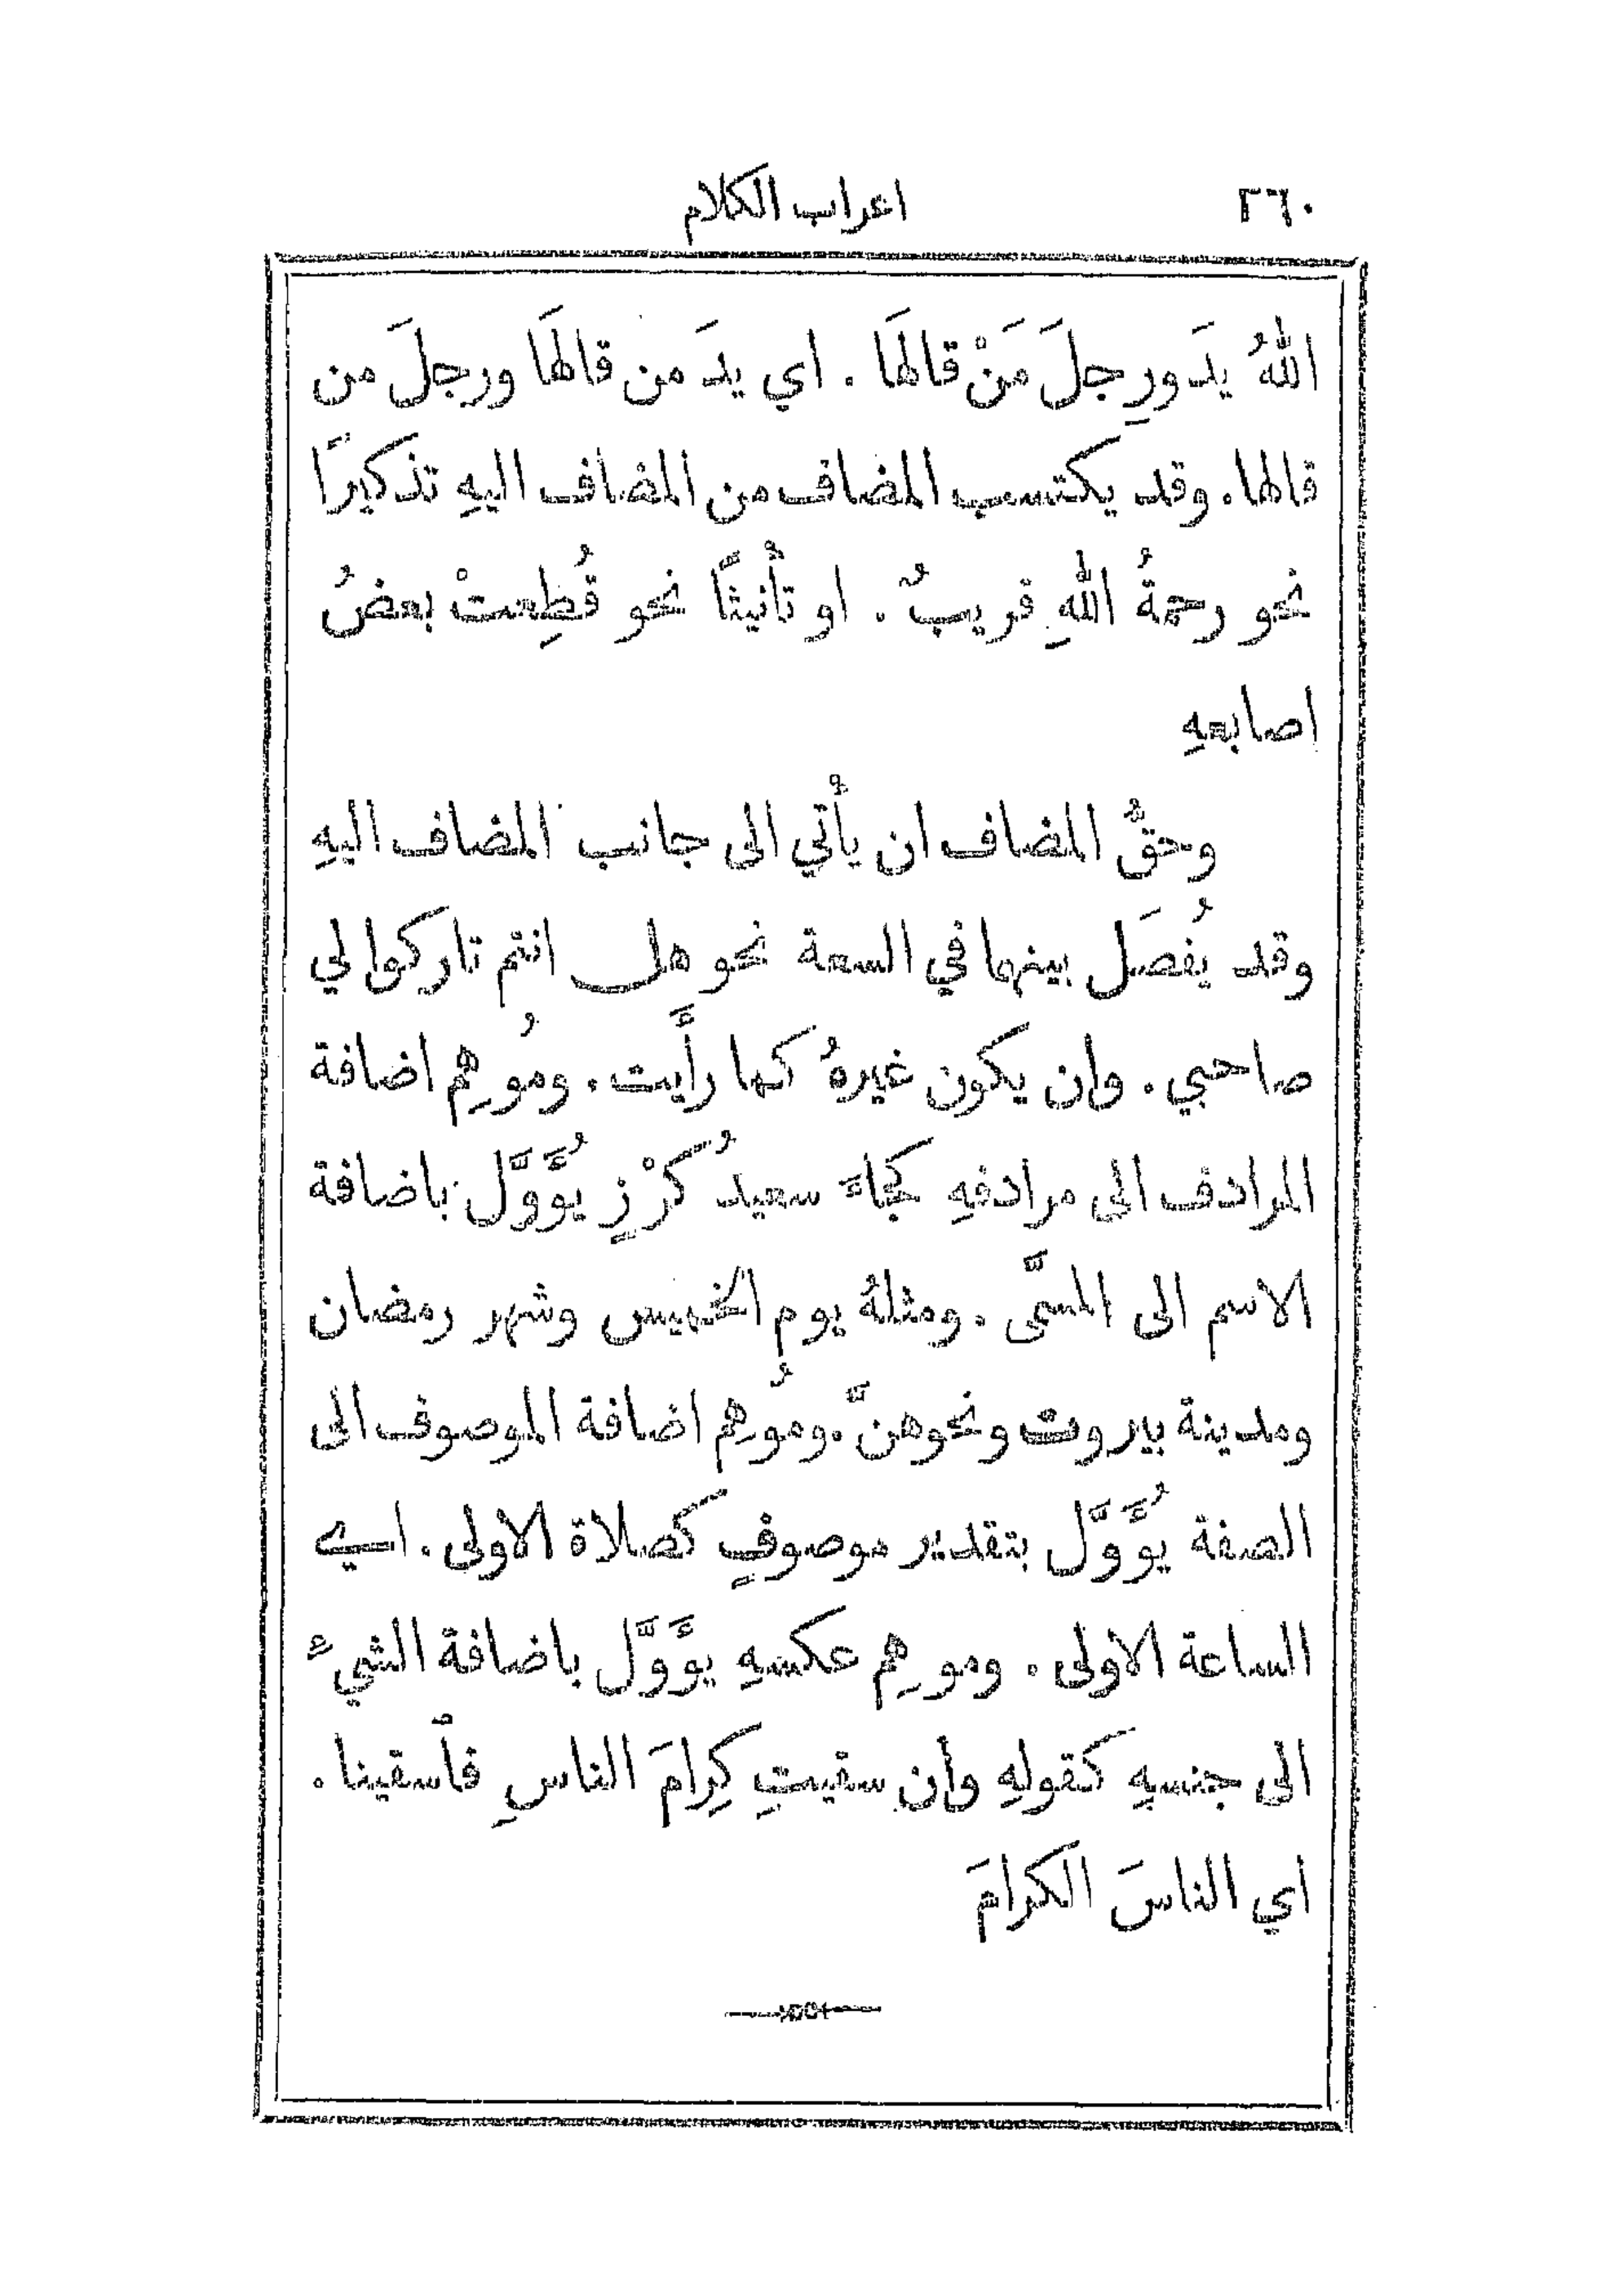 ٢٦٠ اعراب الكلام
اللهُ يدَ ورِجلَ مَنْ قالهَا . اي يدَ من قالهَا ورجلَ من
قالها . وقد يكتسب المضاف من المضاف اليهِ تذكيرًا
نحو رحمةُ اللهِ قريبٌ . او تأْنيثًا نحو قُطِعتْ بعضُ
اصابعهِ
وحقُّ المضاف ان يأْتي الى جانب المضاف اليهِ
وقد يُفصَل بينهما في السعة نحو هل انتم تاركوا لي
صاحبي . وان يكون غيرهُ كما رأَيت . ومُوهِم اضافة
المرادف الى مرادفهِ كجاءَ سعيدُ كُرْزٍ يُؤَوَّل باضافة
الاسم الى المسمَّى . ومثلهُ يوم الخميس وشهر رمضان
ومدينة بيروت ونحوهنَّ . ومُوهِم اضافة الموصوف الى
الصفة يُؤَوَّل بتقدير موصوفٍ كصلاة الاولى . اي
الساعة الاولى . وموهِم عكسهِ يؤَوَّل باضافة الشيءِ
الى جنسهِ كقولهِ وأن سقيتِ كِرامَ الناسِ فأسقينا .
اي الناسَ الكرامَ